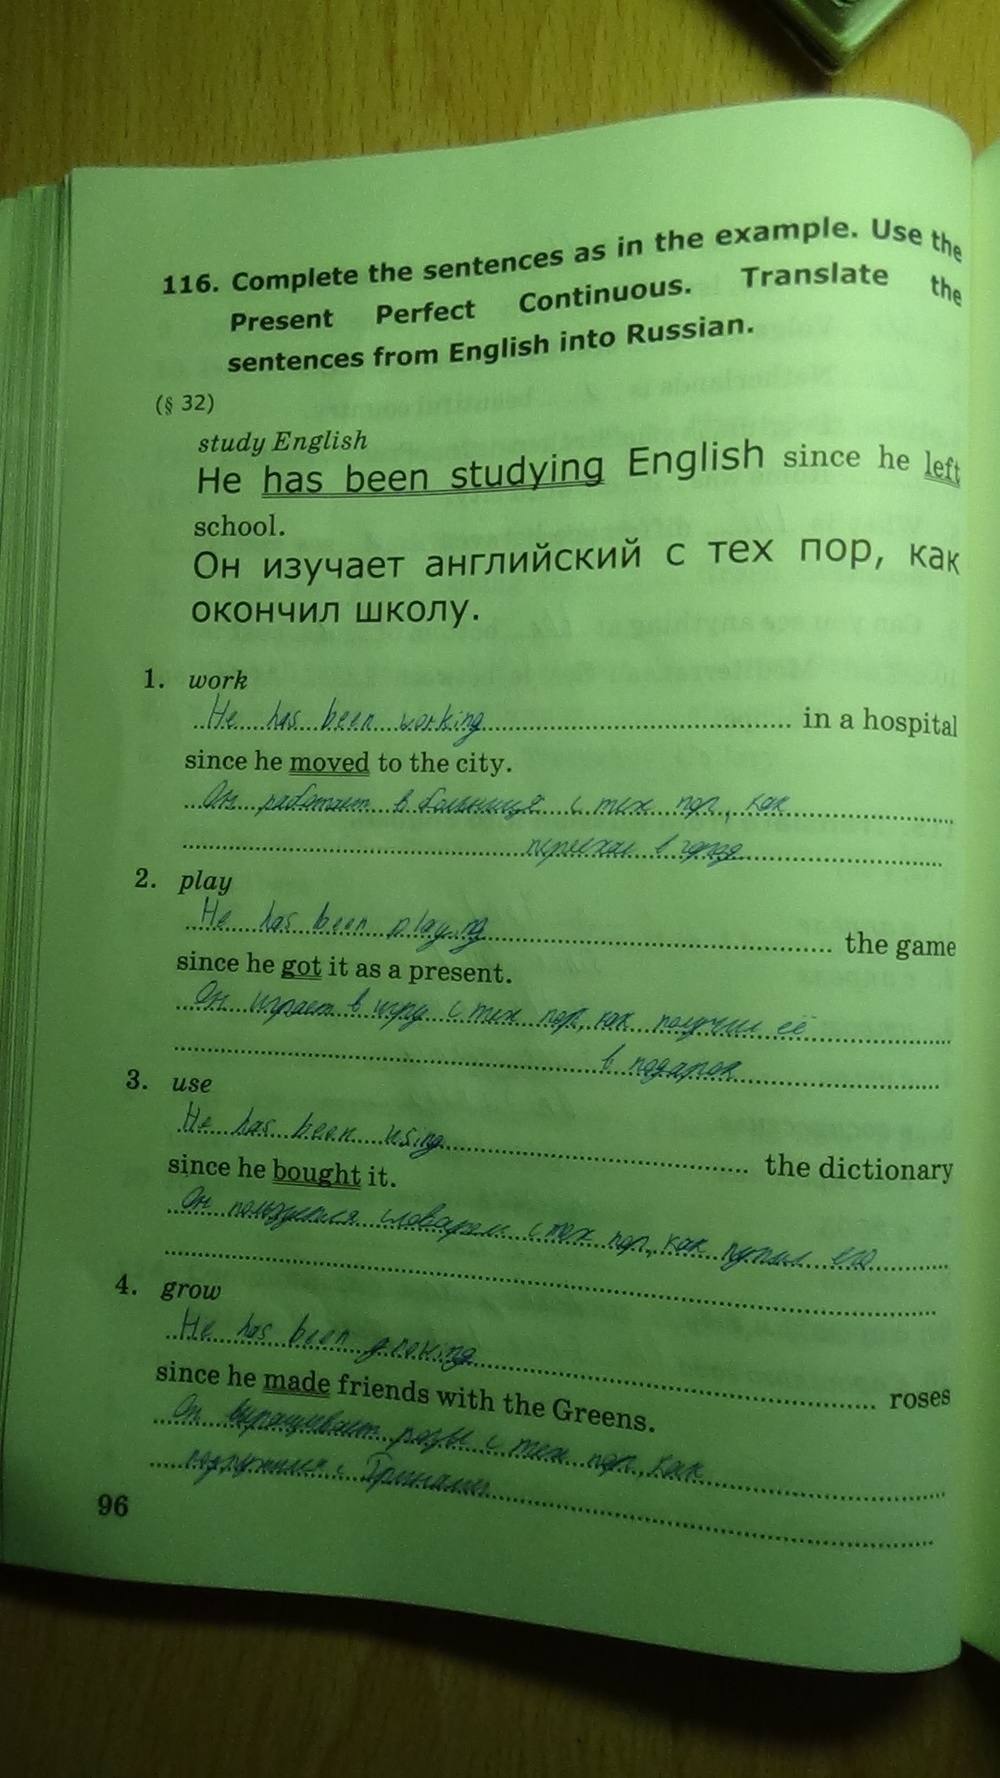 116. Complete the sentences as in the example. Use the
Present Perfect Continuous. Translate the
sentences from English into Russian.
(§ 32)
study English
He has been studying English since he left
school.
Он изучает английский с тех пор, как
окончил школу.
1. work
He has been working in a hospital
since he moved to the city.
Он работает в больнице с тех пор, как
переехал в город
2. play
He has been playing the game
since he got it as a present.
Он играет в игру с тех пор, как получил её
в подарок
3. use
He has been using the dictionary
since he bought it.
Он пользуется словарем с тех пор, как купил его
4. grow
He has been growing roses
since he made friends with the Greens.
Он выращивает розы с тех пор, как
подружился с Гринами
96